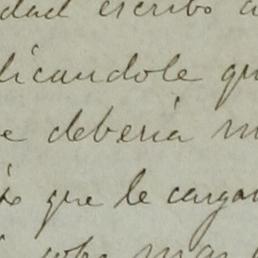 dad escribo a
licandole qu
e deberia m
que le cargar